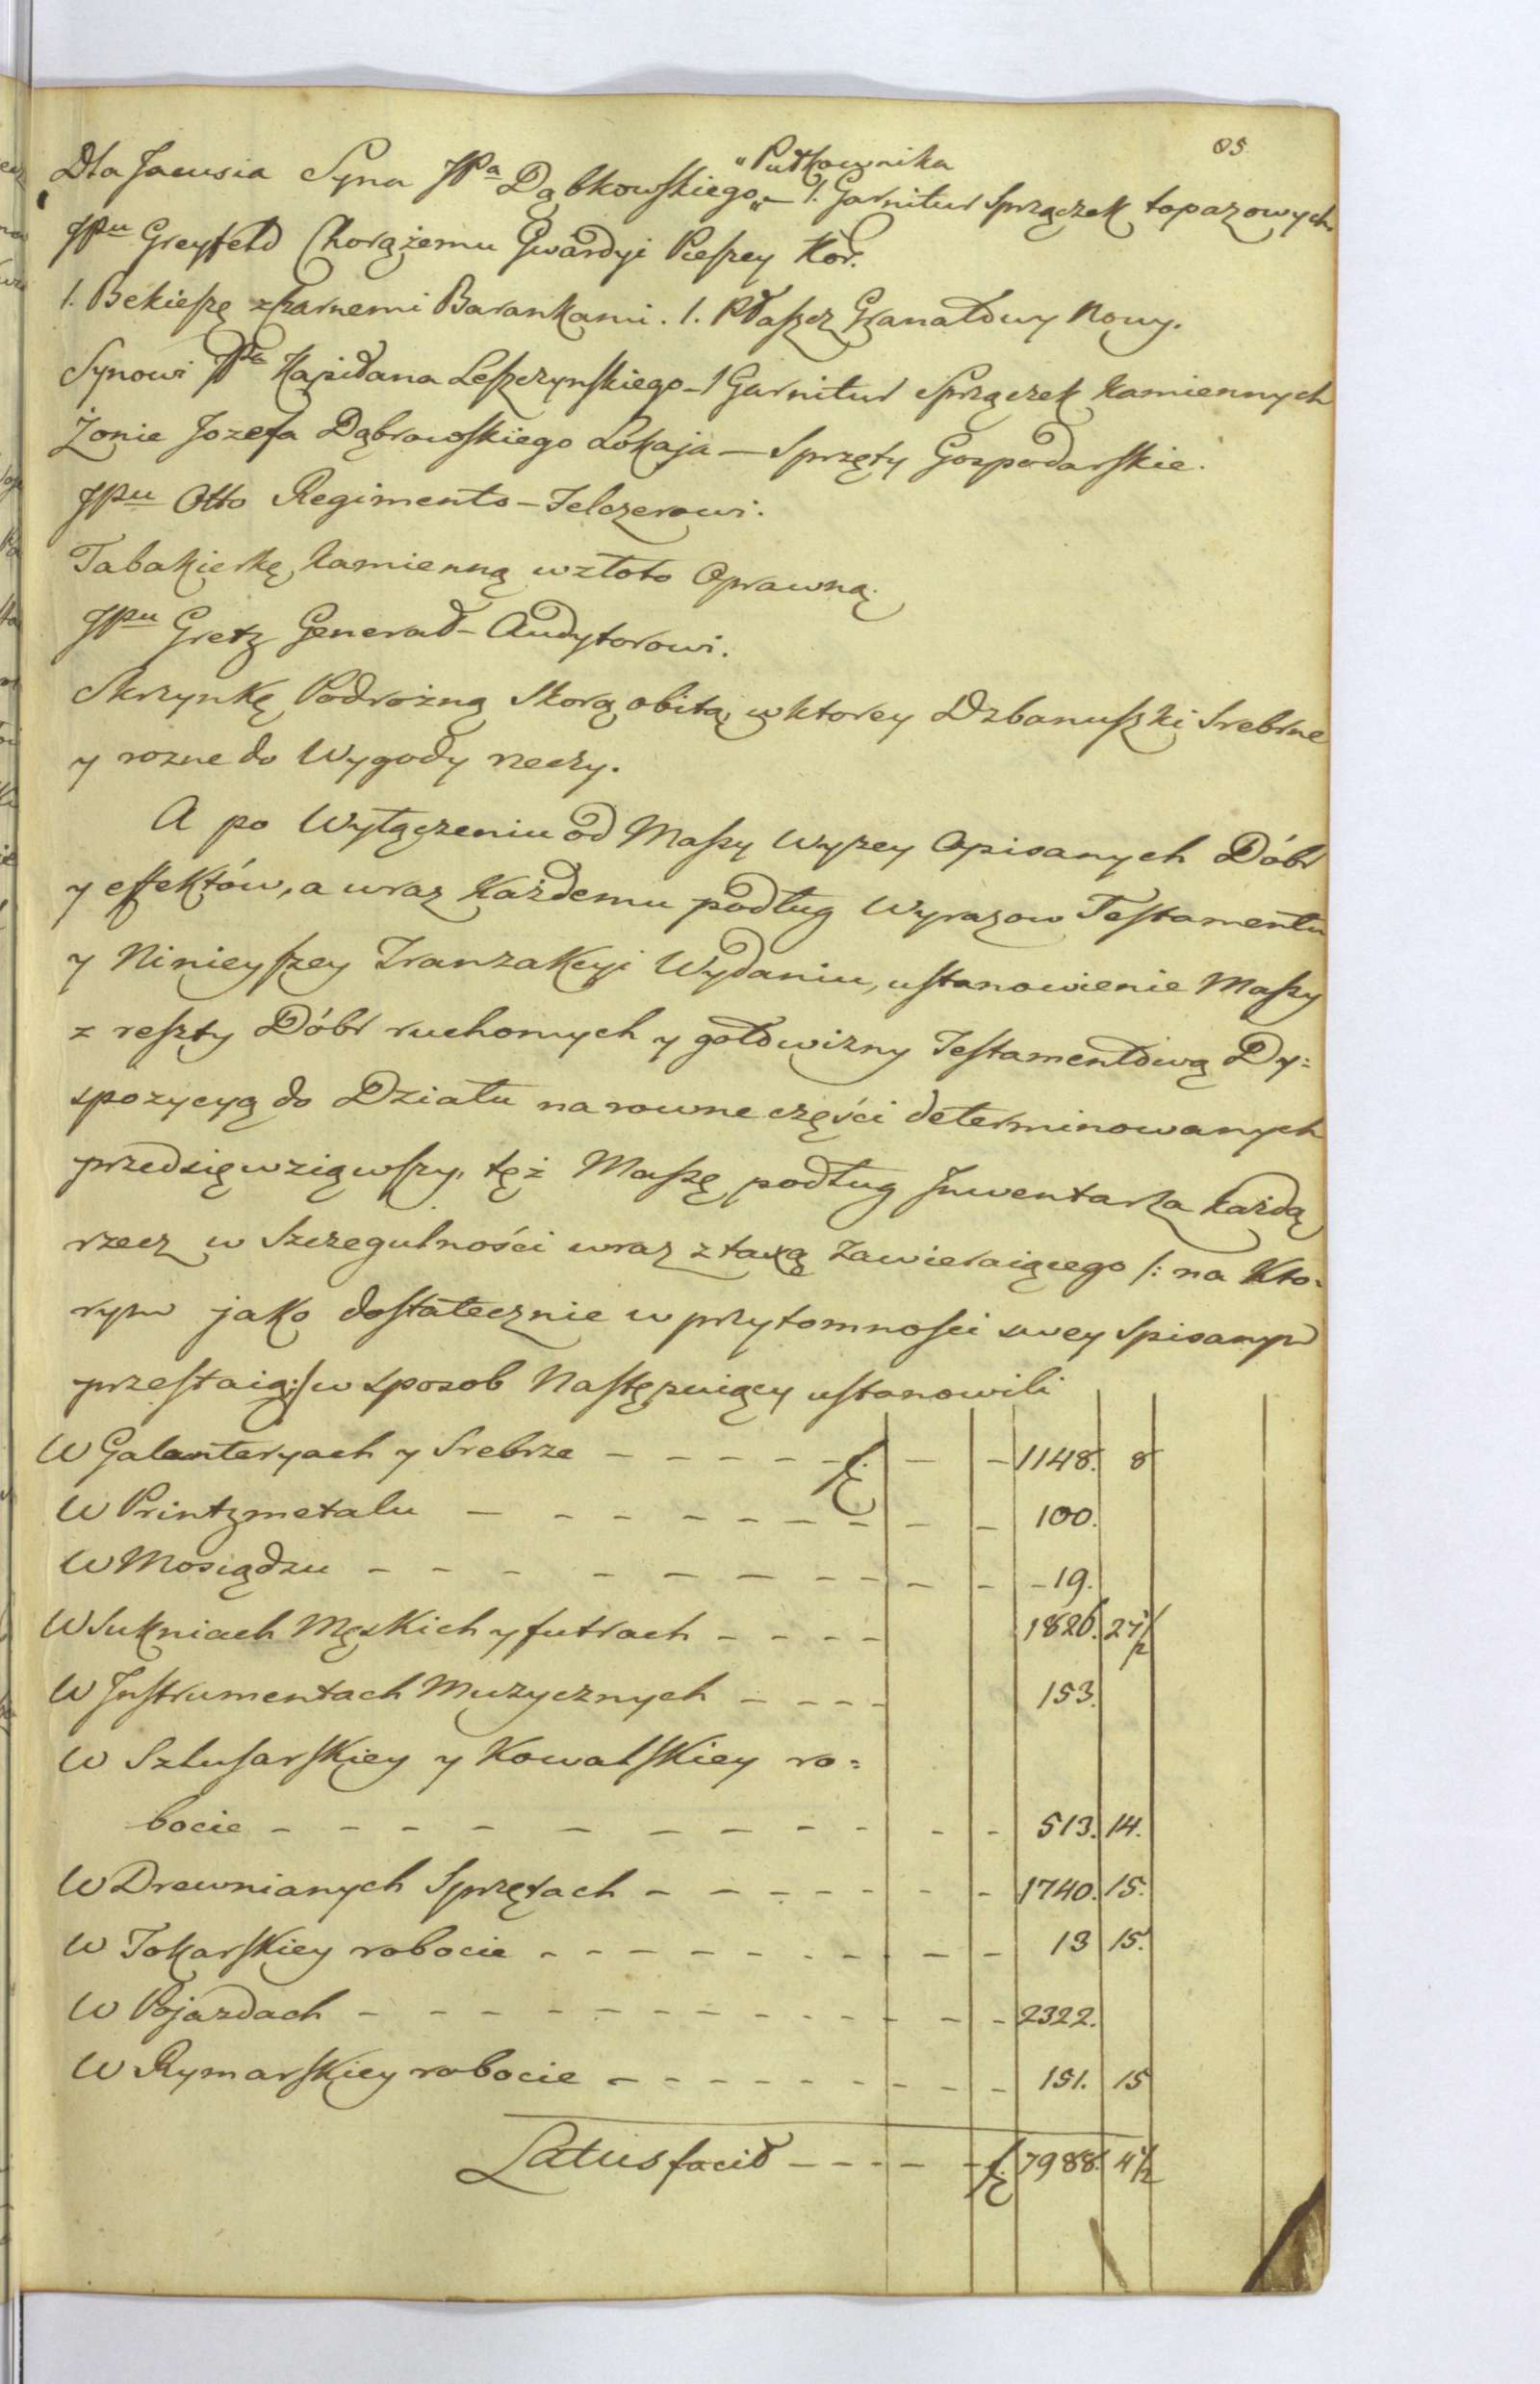 85
"Pułkownika
Dla Jacusia Syna JPa Dąbkowskiego„ – 1. Garnitur Sprzączek topazowych
JPu Greyfeld Chorążemu Gwardyi Pieszey Kor.
1. Bekieszę z Czarnemi Barankami. 1. Płaszcz Granatowy Nowy.
Synowi JPa Kapitana Leszczynskiego – 1 Garnitur Sprzączek kamiennych
Żonie Jozefa Dąbrowskiego Lokaja – Sprzęty Gospodarskie.
JPu Otto Regiments – Felczerowi.
Tabakierkę kamienną w złoto Oprawną.
JPu Gretz Generał – Audytorowi.
Skrzynkę Podrożną Skorą obitą w ktorey Dzbanuszki Srebrne
y rozne do Wygody rzeczy.
A po Wyłączeniu od Massy Wyzey Opisanych Dóbr
y effektów, a wraz Każdemu podług Wyrazow Testamentu
y Ninieyszey Tranzakcyi Wydaniu, ustanowienie Massy
z reszty Dóbr ruchomych y gotowizny Testamentową Dy=
spozycyą do Działu na rowne części determinowanych
przedsięwziąwszy, tęż Massę podług Inwentarza każdą
rzecz w Szczegulności wraz z taxą Zawieraiącego /: na Kto=
rym jako dostatecznie w przytomności swey Spisanym
przestaią :/ w sposob Następuiący ustanowili
W Galanteryach y Srebrze – – – – – – – – 1148. 8
W Printzmetalu – – – – – – – – – – 100.
W Mosiądzu – – – – – – – – – – – 19.
W Sukniach Męskich y futrach – – – – 1826. 27 1/2
W Instrumentach Muzycznych – – – – 153.
W Szlusarskiey y Kowalskiey ro=
bocie – – – – – – – – – – – – 513. 14.
W Drewnianych Sprzętach – – – – – – – – 1740. 15.
W Tokarskiey robocie – – – – – – – – – – 13 15.
W Pojazdach – – – – – – – – – – – – – 2322.
W Rymarskiey robocie – – – – – – – – – 151. 15
Latus facit – – – – – 7988. 4 1/2